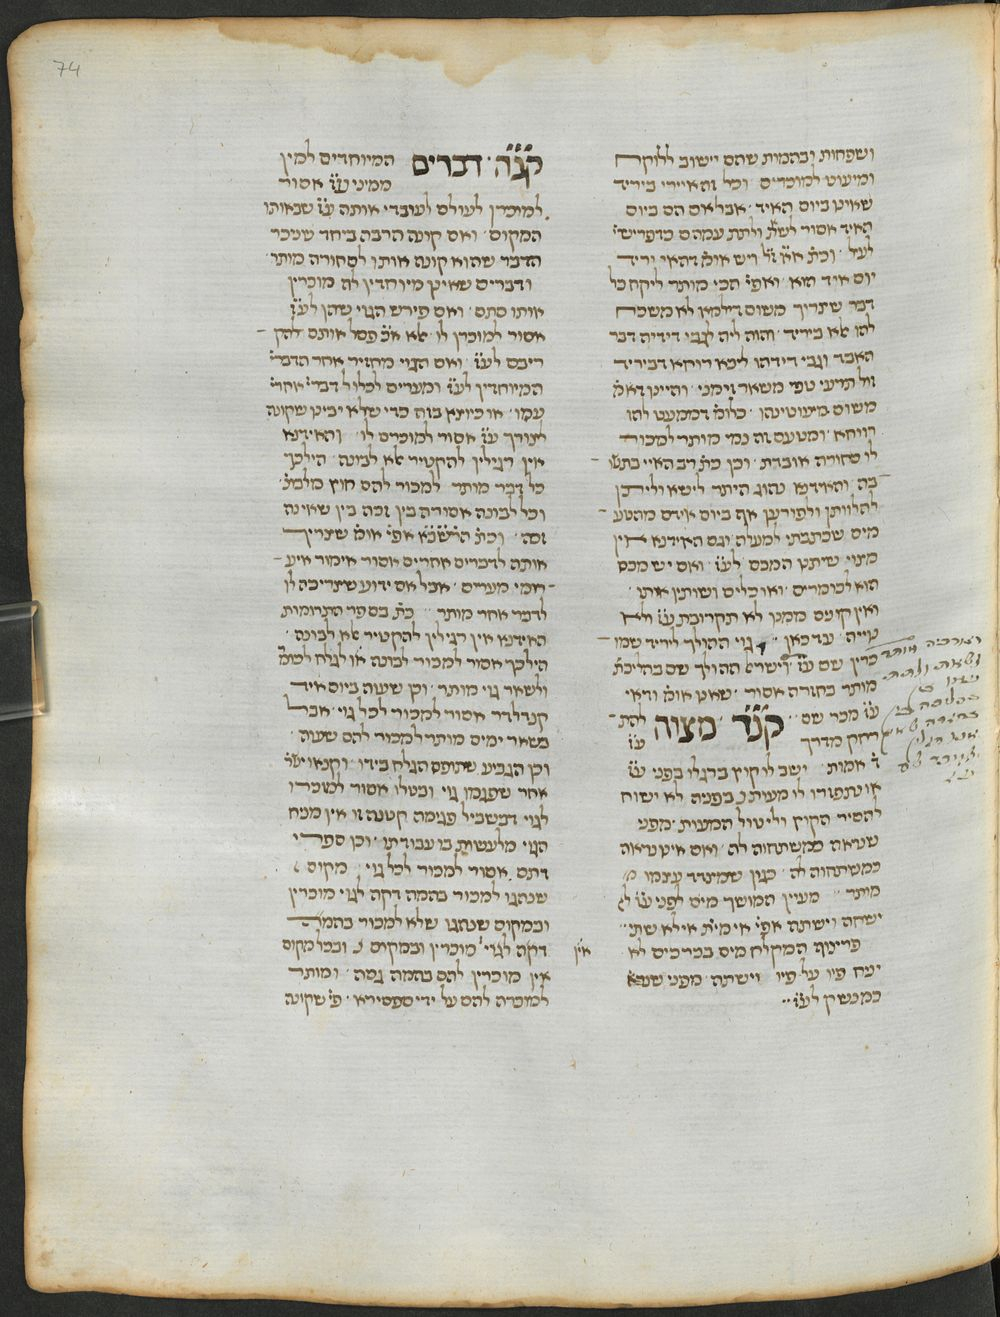 74
ושפחות ובהמות שהם יישוב ללוקח
ומיעוט למוכרים וכל זה איירי ביריד
שאינו ביום האיד אבל אם הם ביום
האיד אסור לשׂאת ולתת עמהם כדפריש׳
לעל
יום איד הוא ואפי׳ הכי מותר ליקח כל
דבר שצריך משום דילמא לא משכח
להו אלא ביריד והוה ליה לגבי דידיה דבר
האבד וגבי דידהו ליכא רווחא דביריד
זול תרעי טפי משאר זימני והיינו דאמ׳
משום מיעוטינהו כלומ׳ דממעט להו
רווחא ומטעם זה נמי מותר למכור
לו סחורה אובדת וכן כת׳ רב האיי בתשו
בה והאידנא נהוג היתר לישא וליתן
להלוותן ולפורען אף ביום אידם מהטע
מים שכתבתי למעלה וגם האידנא אין
מצוי שיתנו המכס לע״ז ואם יש מכס
הוא לכומרים ואוכלים ושותין אותו
ואין קונים ממנו לא תקרובת ע״ז ולא
עייה עד כאן גוי ההולך ליריד שמו
כרין שם ע״ז וישראל ההולך שם בהליכה
מותר בחזרה אסור שאנו אומ׳ ודאי
ע״ז מכר שם קנ״ד מצוה להת
רחק מדרך ע״ז
ד׳ אמות ישב לו קוץ ברגלו בפני ע״ז
או נתפזרו לו מעותיו בפניה לא ישוח
להסיר הקוץ וליטול המעות מפני
שנראה כמשתחוה לה ואם אינו נראה
כמשתחוה לה כגון שמצדד עצמו
מותר מעיין המושך מים לפני ע״ז לא
ישחה וישתה אפי׳ אימית אילא שתי
פרצוף המקלח מים בכרכים לא
יניח פיו על פיו וישתה מפני שנרא׳
כמנשק לע״ז
אין
קנ״ה דברים המיוחדים למין
ממיני ע״ז אסור
למוכרן לעולם לעובדי אותה ע״ז שבאותו
המקום ואם קונה הרבה ביחד שניכר
הדבר שהוא קונה אותו לסחורה מותר
ודברים שאינן מיוחדין לה מוכרין
אותו סתם ואם פירש הגוי שהן לע״ז
אסור למוכרן לו אלא א״כ פסל אותם להק
ריבם לע״ז ואם הגוי מחזיר אחר הדברי׳
המיוחדין לע״ז ומערים לכלול דברי׳ אחרי׳
עמו או כיוצא בזה כדי שלא יבינו שקונה
לצורך ע״ז אסור למוכרם לו והאידנא
אין רגילין להקטיר אלא לבונה הילכך
כל דבר מותר למכור להם חוץ מלבנ׳
וכל לבונה אסורה בין זכה בין שאינה
זכה אפי׳ אומ׳ שצריך
אותה לדברים אחרים אסור אימור אע
רומי מערים אבל אם ידוע שצריכה לו
לדבר אחר מותר כת׳ בספר התרומות
האידנא אין רגילין להקטיר אלא לבונה
הילכך אסור למכור לבונה או לגלח לכומ׳
ולשאר גוי מותר וכן שעוה ביום איד
קנדלדר אסור למכור לכל גוי אבל
בשאר ימים מותר למכור להם שעוה
וכן הגביע שתופס הגלח בידו וקנאו ישר׳
אחר שפגמו גוי ובטלו אסור למוכרו
לגוי דבשביל פגימה קטנה זו אין מניח
הגוי מלעשות בו עבודתו וכן ספרי
דתם אסור למכור לכל גוי מקום
שנהגו למכור בהמה דקה לגוי מוכרין
ובמקום שנהגו שלא למכור בהמה
דקה לגוי מוכרין ובמקום ובכל מקום
אין מוכרין להם בהמה גסה ומותר
למוכרה להם על ידי ספסירא פי׳ שקונה